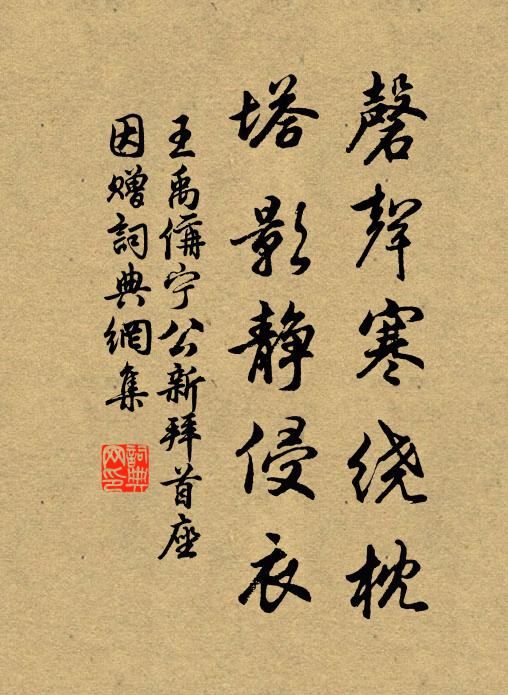 磬聲寒绕枕
塔影静侵衣
王禹偁宁公新拜首座
因赠詞典網集
詞典網印